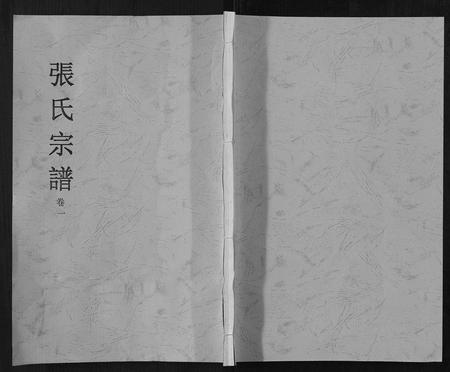 張氏宗譜
卷一